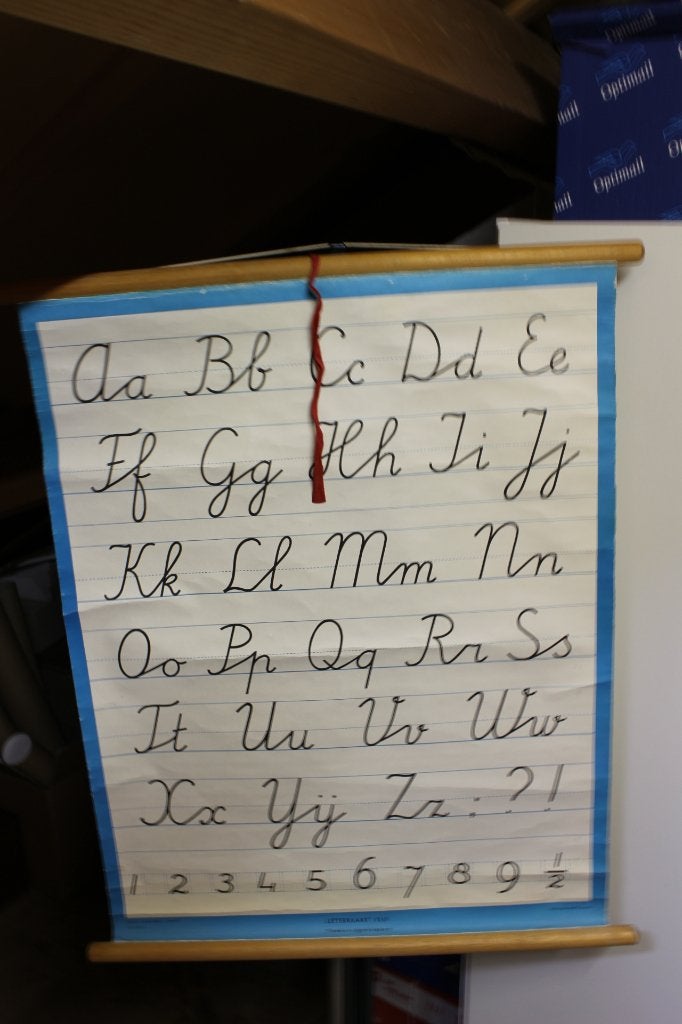 Optimail
Optimail
Aa Bb Cc Dd Ee
Ff Gg Hh Ii Jj
Kk Ll Mm Nn
Oo Pp Qq Rr Ss
Tt Uu Vv Ww
Xx Yij Zz : ? !
1 2 3 4 5 6 7 8 9 1/2